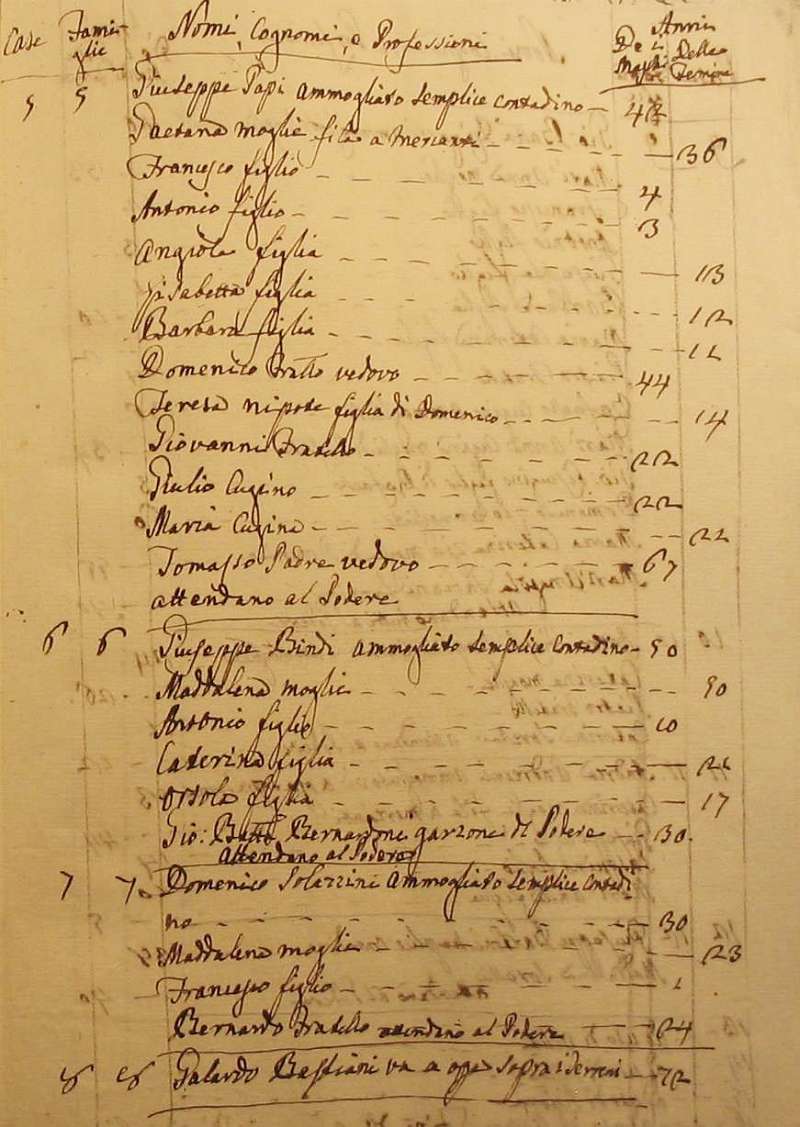 Case Famiglie Nomi, Cognomi, e Professioni Anni De i Maschi Delle Femine
5 5 Giuseppe Papi ammogliato semplice contadino
Gaetana moglie fila a mercanti 36
Francesco figlio 4
Antonio figlio 3
Angiola figlia 13
Isabetta figlia 12
Barbara figlia
Domenico Fratto vedovo 44
Teresa nipote figlia di Domenico 14
Giovanni Fratello 22
Giulio Cugino 22
Maria Cugina 22
Tomasso Padre vedovo 67
attendano al Podere
6 6 Giuseppe Bindi ammogliato semplice contadino 50
Maddalena moglie 50
Antonio figlio 10
Caterina figlia
Orsola figlia 17
Gio: Batta Bernardoni garzone di Podere 30
attendano al Podere
7 7 Domenico Solazzini ammogliato semplice contadi
no 30
Maddalena moglie 23
Francesco figlio 1
Bernardo Fratello attendano al Podere 24
8 8 Galardo Bastiani va a opre sopra i Terreni 72